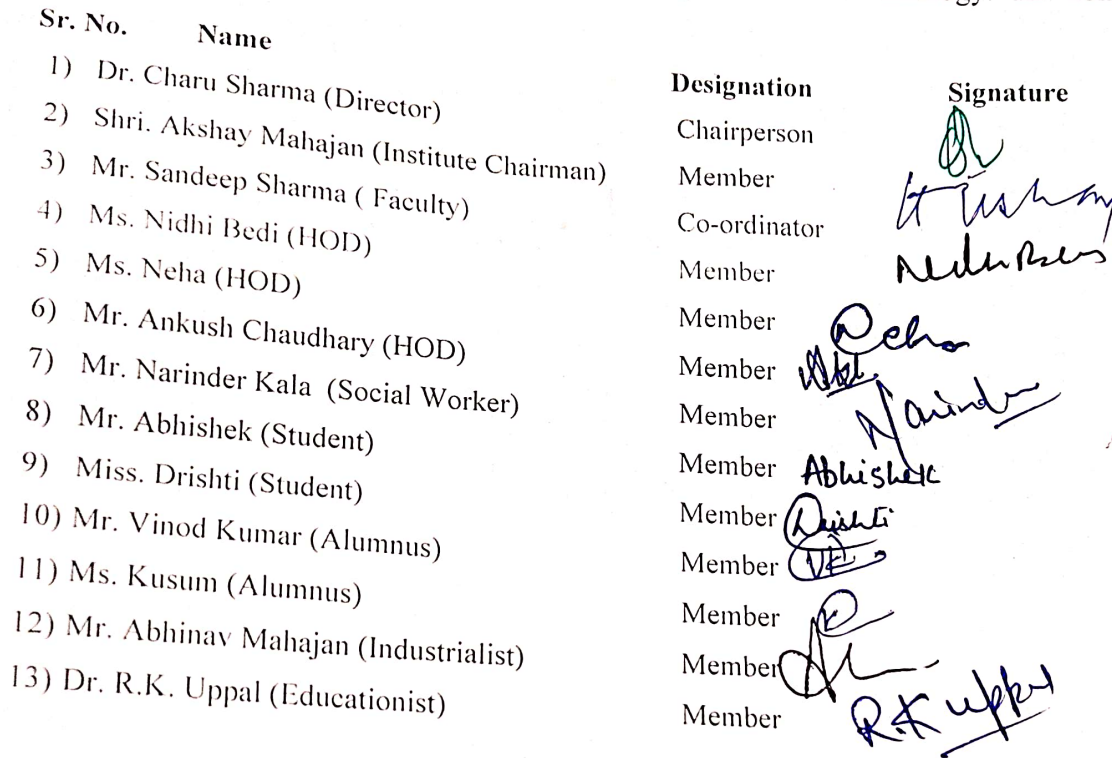 Sr. No. Name Designation Signature
1) Dr. Charu Sharma (Director) Chairperson
2) Shri. Akshay Mahajan (Institute Chairman) Member
3) Mr. Sandeep Sharma ( Faculty) Co-ordinator
4) Ms. Nidhi Bedi (HOD) Member
5) Ms. Neha (HOD) Member Neha
6) Mr. Ankush Chaudhary (HOD) Member
7) Mr. Narinder Kala (Social Worker) Member Narinder
8) Mr. Abhishek (Student) Member Abhishek
9) Miss. Drishti (Student) Member Drishti
10) Mr. Vinod Kumar (Alumnus) Member
11) Ms. Kusum (Alumnus) Member
12) Mr. Abhinav Mahajan (Industrialist) Member
13) Dr. R.K. Uppal (Educationist) Member R.K uppal